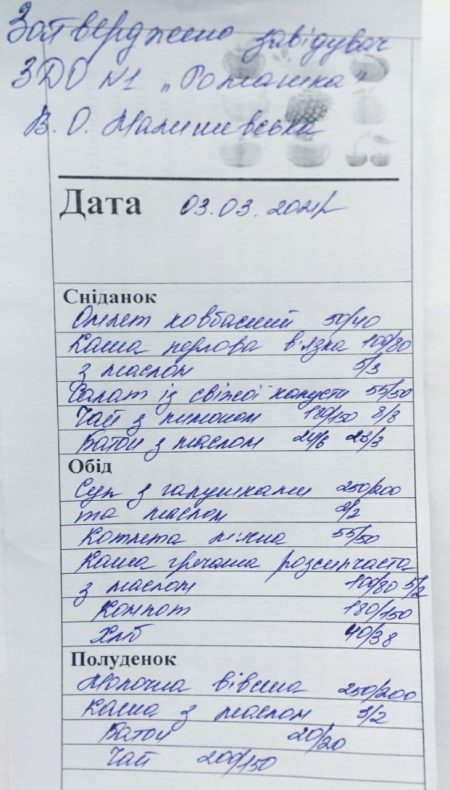 Затверджено завідувач
ЗДО №1 „Ромашка"
В. О. Малишевська
Дата 03.03.2021р
Сніданок
Омлет ковбасний 50/40
Каша перлова в'язка 100/80
з маслом 5/3
Салат із свіжої капусти 55/50
Чай з лимоном 180/150 8/8
Батон з маслом
Обід
Суп з галушками 250/200
та маслом 2/2
Котлета ніжна 55/50
Каша гречана розсипчаста
з маслом 100/80 5/2
Компот 180/150
Хліб 40/38
Полуденок
Молочна вівсяна 250/200
каша з маслом 3/2
Батон 20/20
Чай 200/150